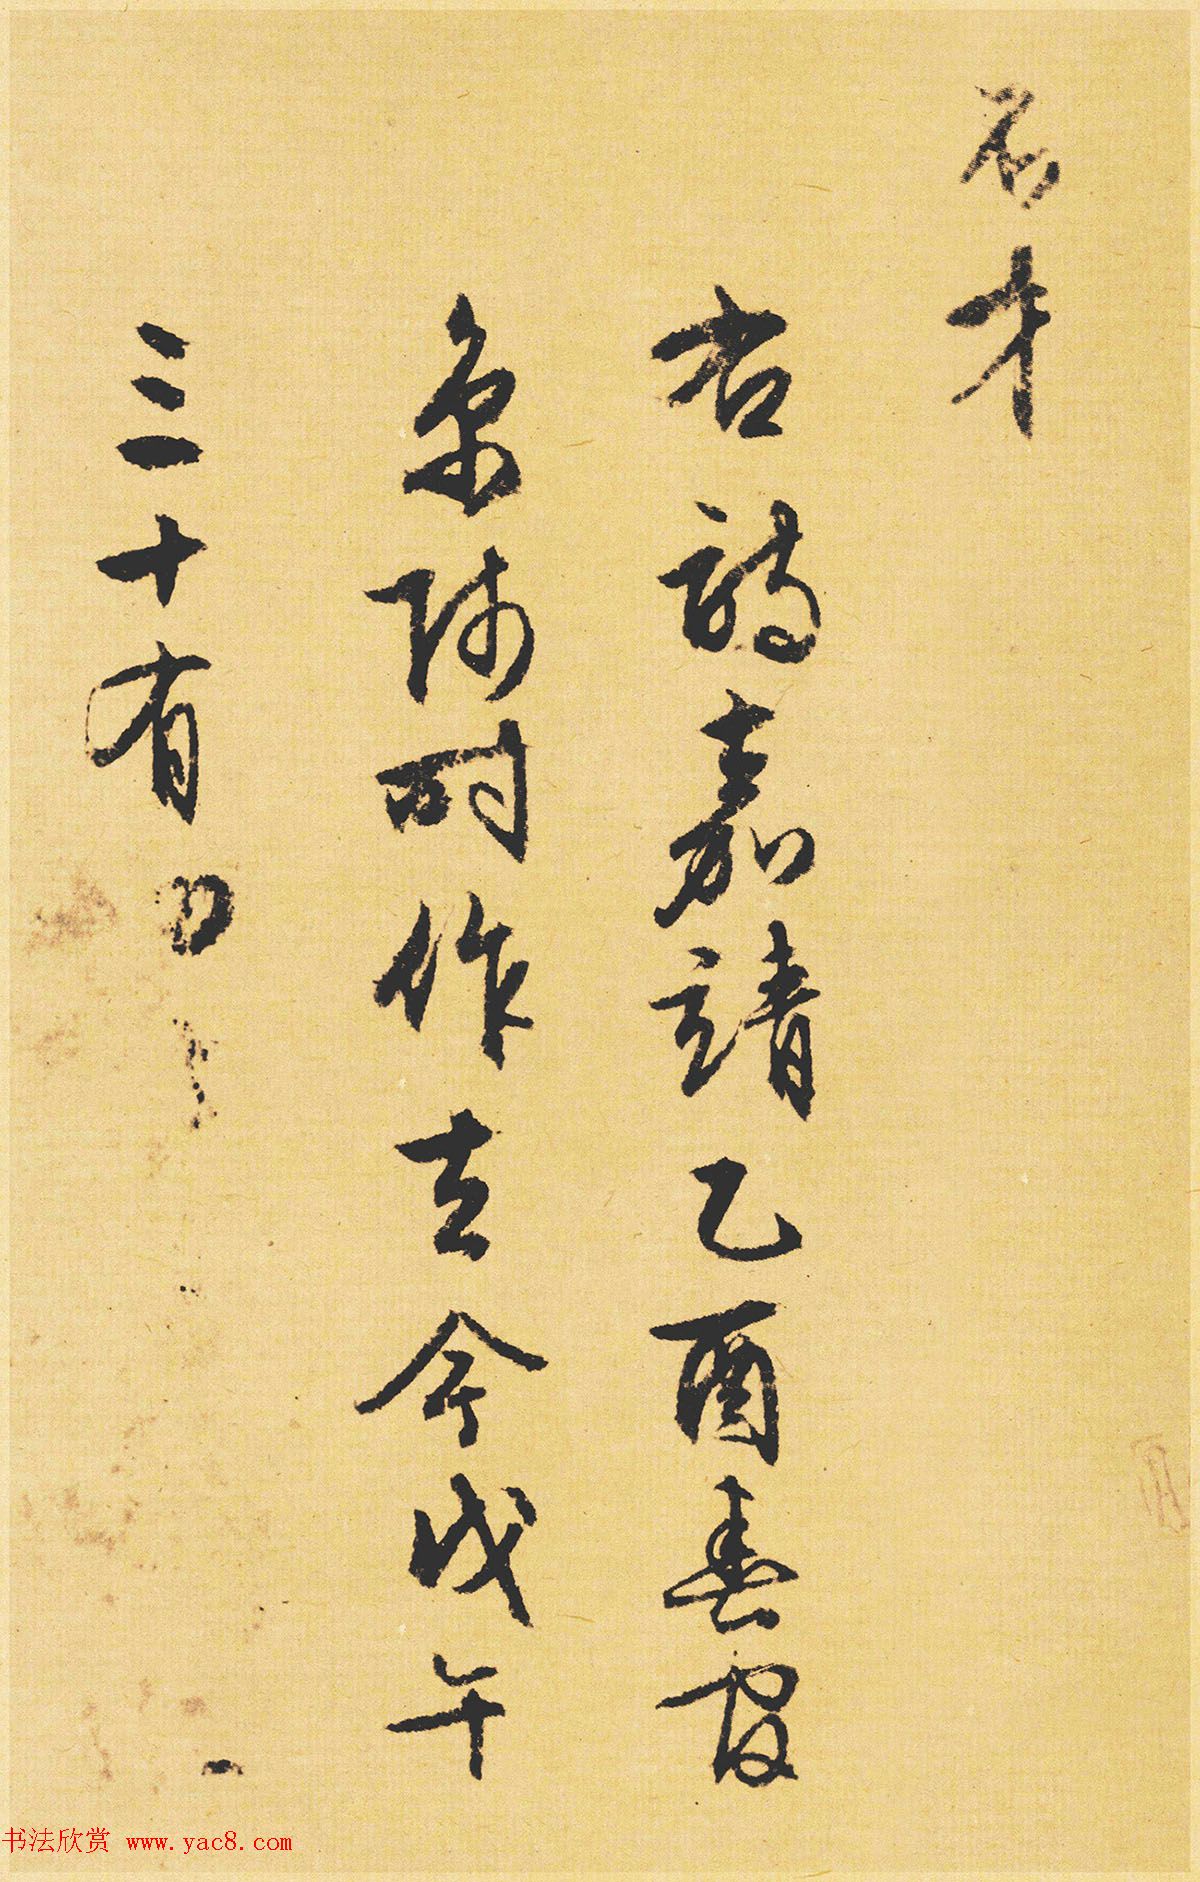 不才
右詩嘉靖乙酉春官
京師時作去今戊午
三十有
书法欣赏 www.yac8.com